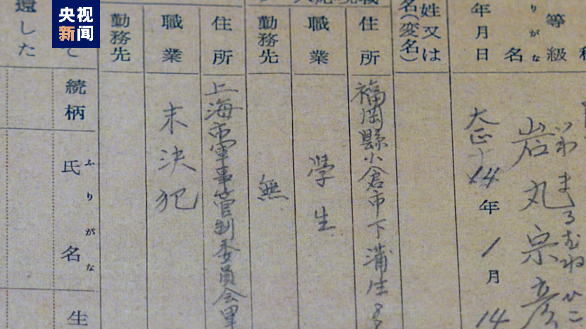 央视新闻
等級
りがな
名
いわまるむねひこ
岩丸宗彦
年月日
大正14年1月14
姓又は
名(変名)
住所
福岡縣小倉市下蒲生
職業
學生
勤務先
無
住所
上海市軍事管制委員会里
職業
未決犯
勤務先
と
続柄
ふりがな
氏名
生
還した